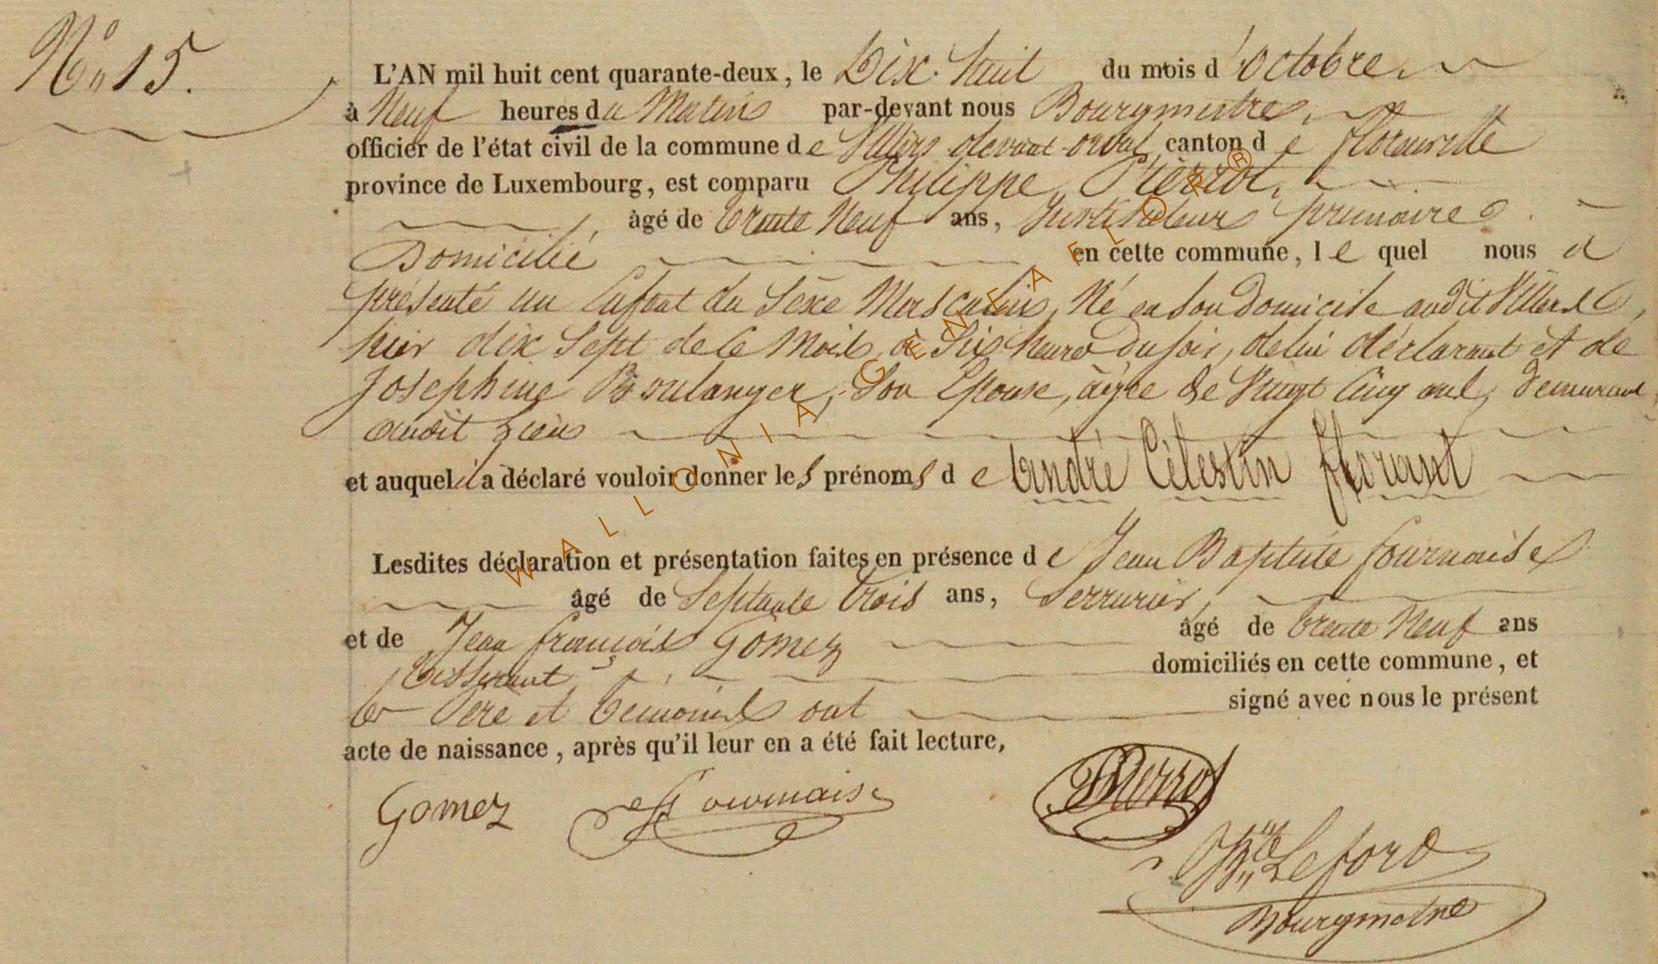 N° 15.
L'AN mil huit cent quarante-deux, le Dix huit du mois d'octobre
à Neuf heures du Matin par-devant nous Bourgmestre,
officier de l'état civil de la commune de Villers devant orval, canton de florenville
province de Luxembourg, est comparu Philippe Pierrot,
âgé de trente Neuf ans, Instituteur primaire
Domicilié en cette commune, lequel nous a
présenté un Enfant du Sexe Masculin, Né en son Domicile audit Villers
hier dix Sept de ce Mois, à Six heures du soir, de lui déclarant et de
Josephine Boulanger, Son Epouse, âgée de Vingt Cinq ans, demeurant
audit Lieu
et auquel il a déclaré vouloir donner les prénoms de André Célestin florant
Lesdites déclaration et présentation faites en présence de Jean Baptiste fournaise
âgé de Septante trois ans, Serrurier,
et de Jean françois Gomez âgé de trente Neuf ans
tisserant domiciliés en cette commune, et
les Père et témoins ont signé avec nous le présent
acte de naissance, après qu'il leur en a été fait lecture,
Gomez fournaise Pierrot
Leford
Bourgmetre
WALLONIA-GENEAFLOR®